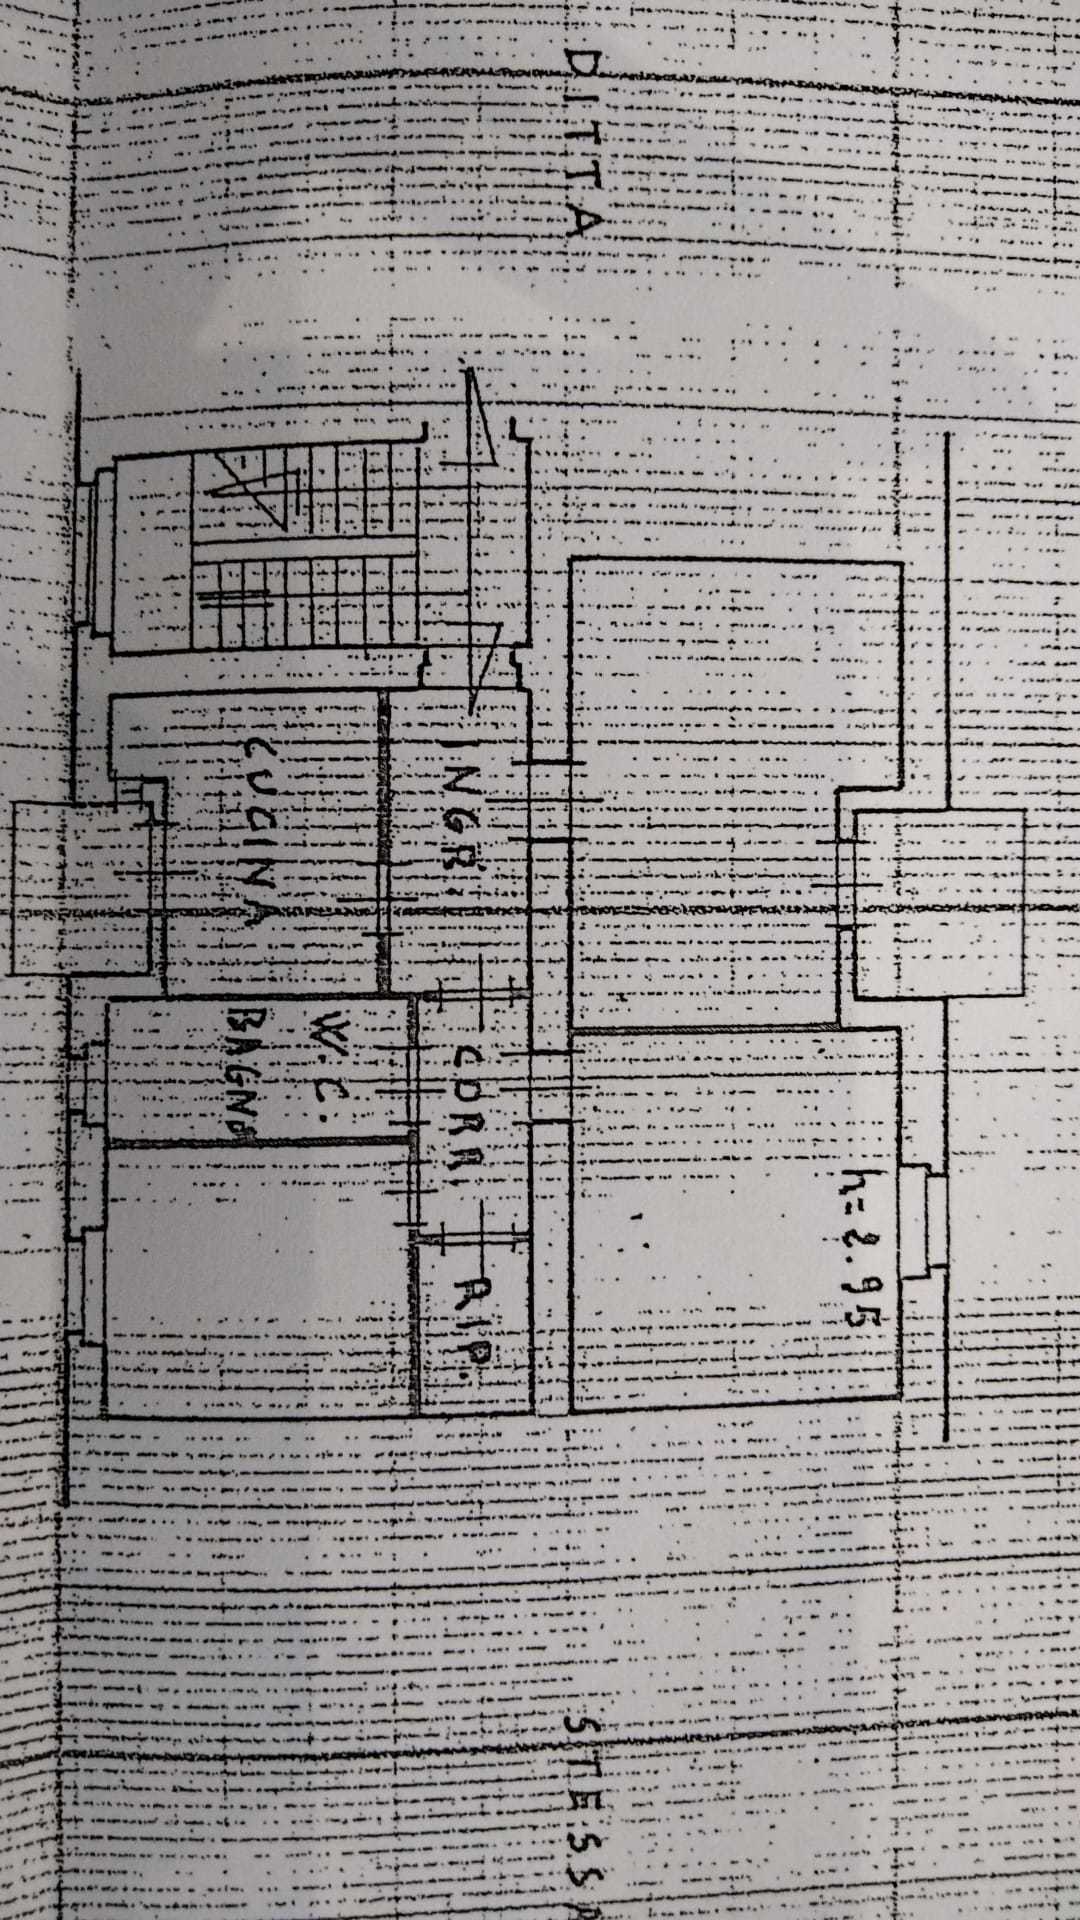 DITTA
h=2.95
INGR.
CORR.
RIP.
CUCINA
W.C.
BAGNO
STESSA